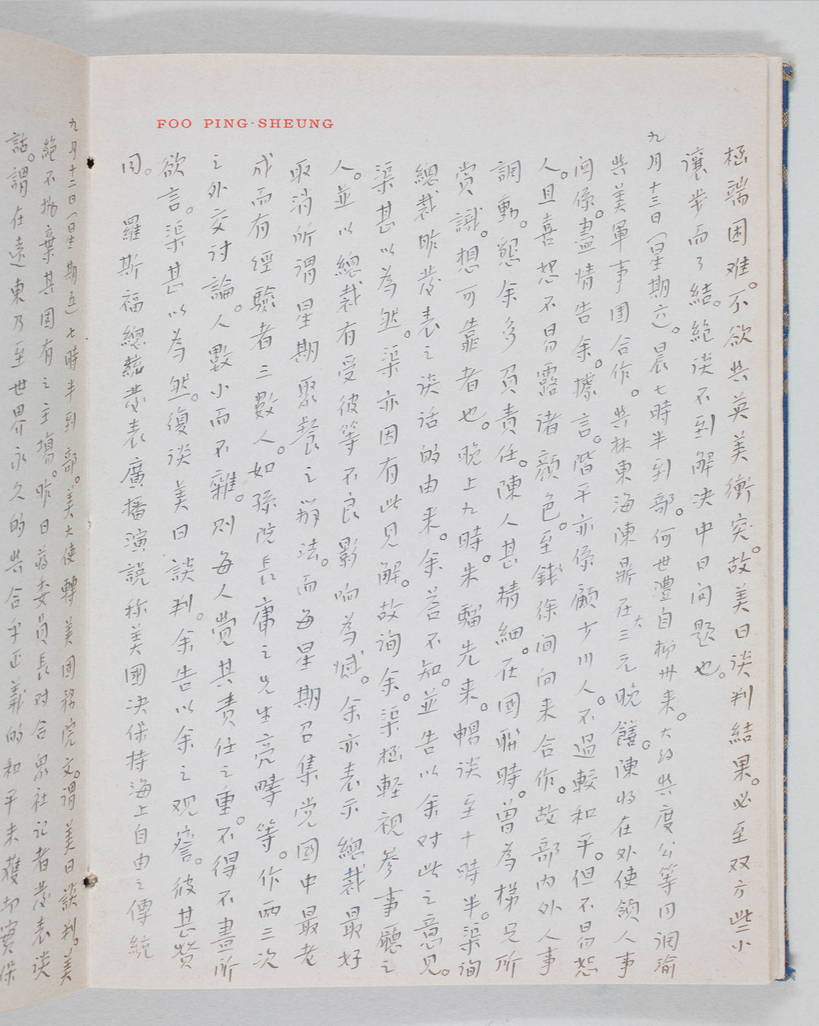 FOO PING-SHEUNG
極端困难。不欲與英美衝突。故美日谈判結果。必至双方些小
讓步而了結。絕谈不到解决中日问題也。
九月十三日(星期六)。晨七時半到部。何世澧自柳州来。大約與度公等同調渝
與美軍事團合作。與林東海陳鼎在大三元晚饍。陳將在外使领人事
问係。盡情告余。據言。階平亦係顧少川人。不過較和平。但不易怒
人。且喜怒不易露诸顏色。至錢徐间向来合作。故部内外人事
調動。懇余多負責任。陳人甚精細。在國聯時。曾為梯兄所
賞識。想可靠者也。晚上九時。朱騮先来。暢谈至十時半。渠询
總裁昨發表之谈话的由来。余荅不知。並告以余对此之意見。
渠甚以為然。渠亦因有此見解。故询余。渠極軽视参事廳之
人。並以總裁有受彼等不良影响為憾。余亦表示總裁最好
取消所谓星期聚餐之辦法。而每星期召集党國中最老
成而有經驗者三數人。如孫院長庸之先生亮疇等。作两三次
之外交討論。人數小而不雜。则每人覺其責任之重。不得不盡所
欲言。渠甚以為然。復谈美日談判。余告以余之观察。彼甚贊
同。 羅斯福總統發表廣播演説称美國决保持海上自由之傳統
九月十二日(星期五)七時半到部。美大使轉美国務院文。谓美日談判。美
絕不抛棄其固有之主塲。昨日蒋委員長对合眾社记者發表谈
話。謂在遠東乃至世界永久的與合乎正義的和平未獲切實保